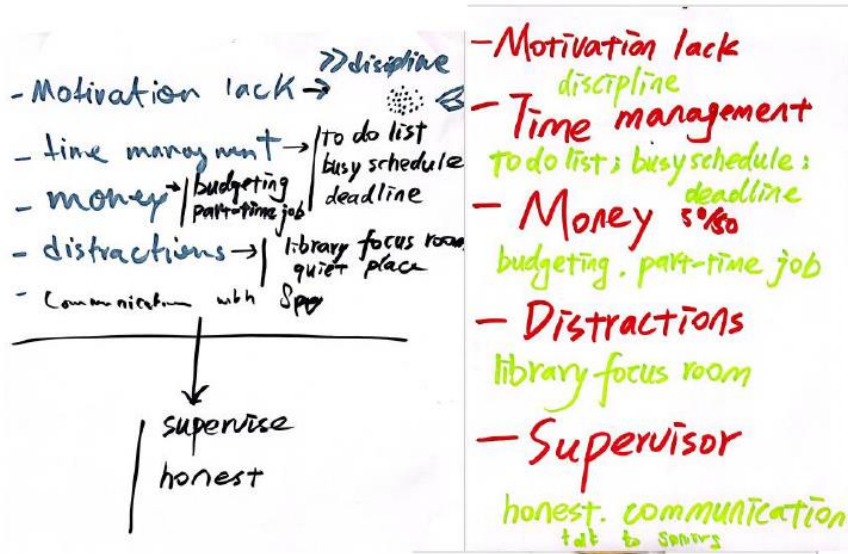 >> discipline
- Motivation lack →
- time managment → to do list
busy schedule
deadline
- money → budgeting
part-time job
- distractions → library focus room
quiet place
- Communication with
supervise
honest
- Motivation lack
discipline
- Time management
to do list; busy schedule;
deadline
- Money 50/50
budgeting. part-time job
- Distractions
library focus room
- Supervisor
honest. communication
talk to